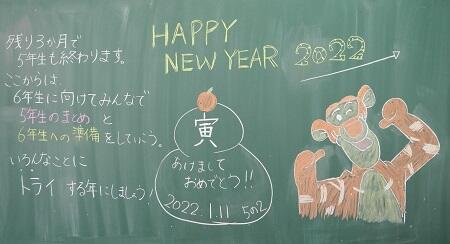 残り3か月で
5年生も終わります。
ここからは、
6年生に向けてみんなで
5年生のまとめ と
6年生への準備をしていこう。
いろんなことに
トライ する年にしましょう!
HAPPY
NEW YEAR 2022
寅
あけまして
おめでとう!!
2022.1.11 5の2